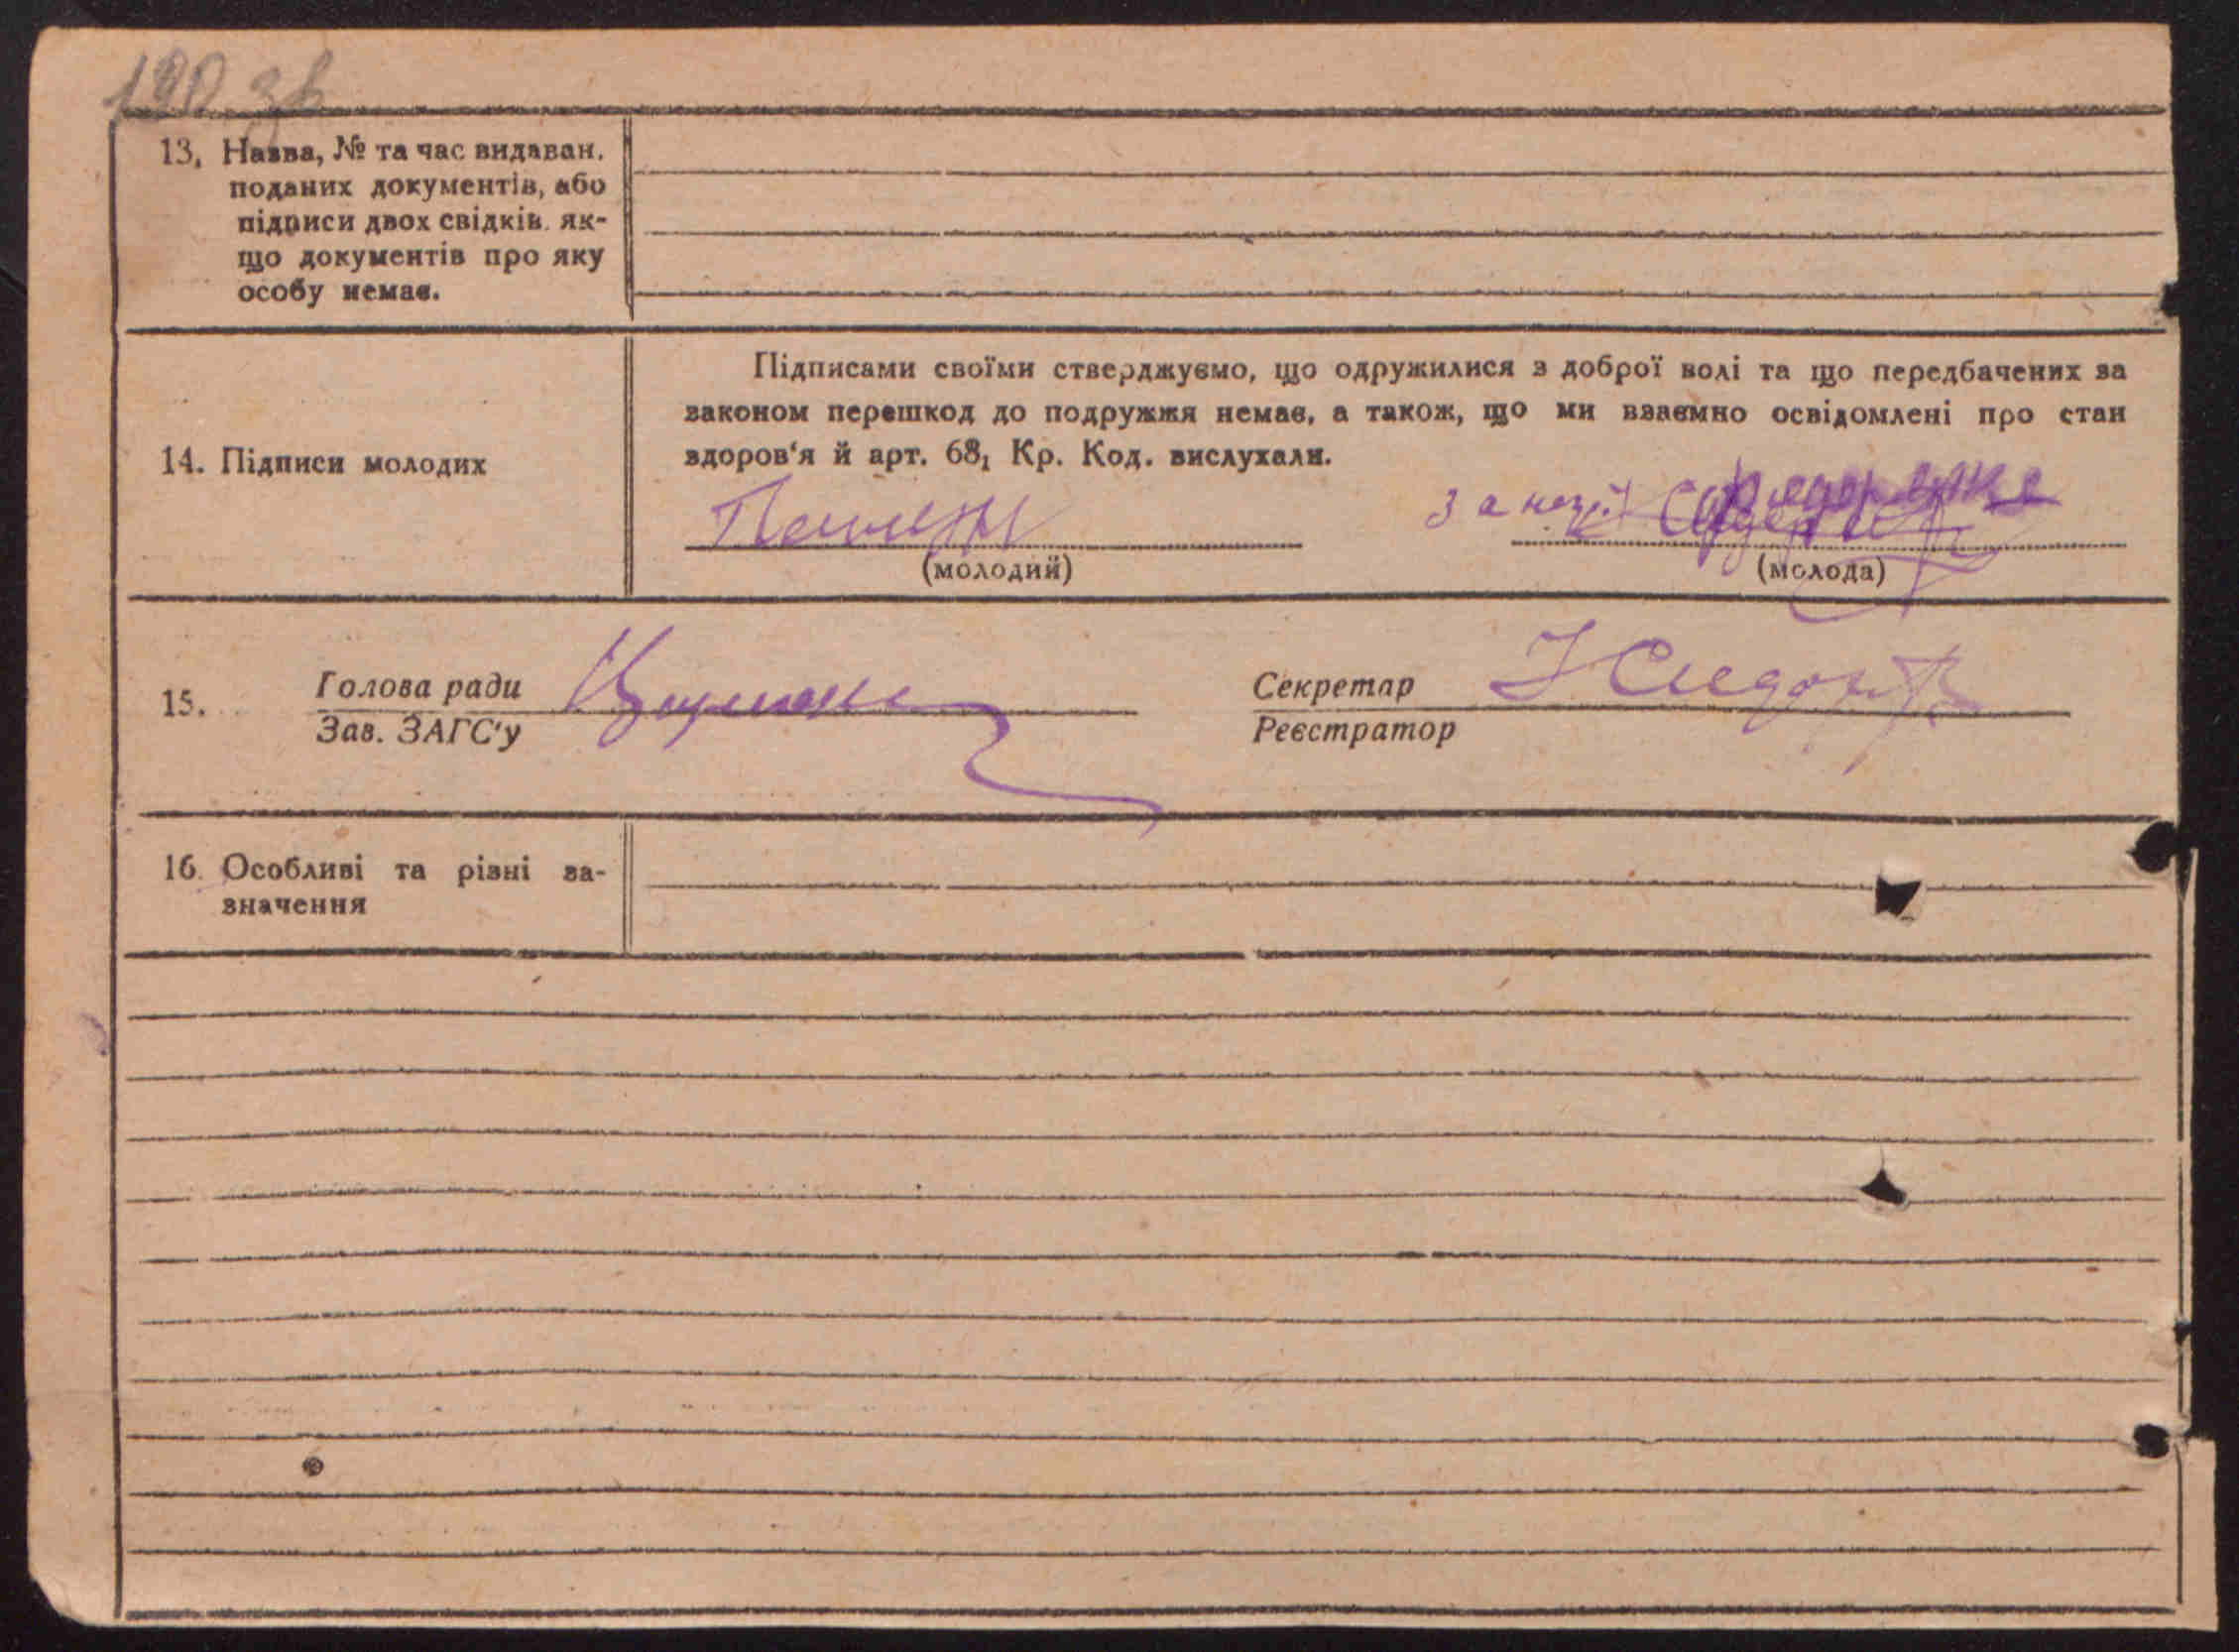 13, Назва, № та час видаван.
поданих документів, або
підписи двох свідків. як-
що документів про яку
особу немає.
14. Підписи молодих
Підписами своїми стверджуємо, що одружилися з доброї волі та що передбачених за
законом перешкод до подружжя немає, а також, що ми взаємно освідомлені про стан
здоров'я й арт. 68₁ Кр. Код. вислухали.
за
(молодий) (молода)
15. Голова ради Секретар
Зав. ЗАГС'у Реєстратор
16. Особливі та різні за-
значення